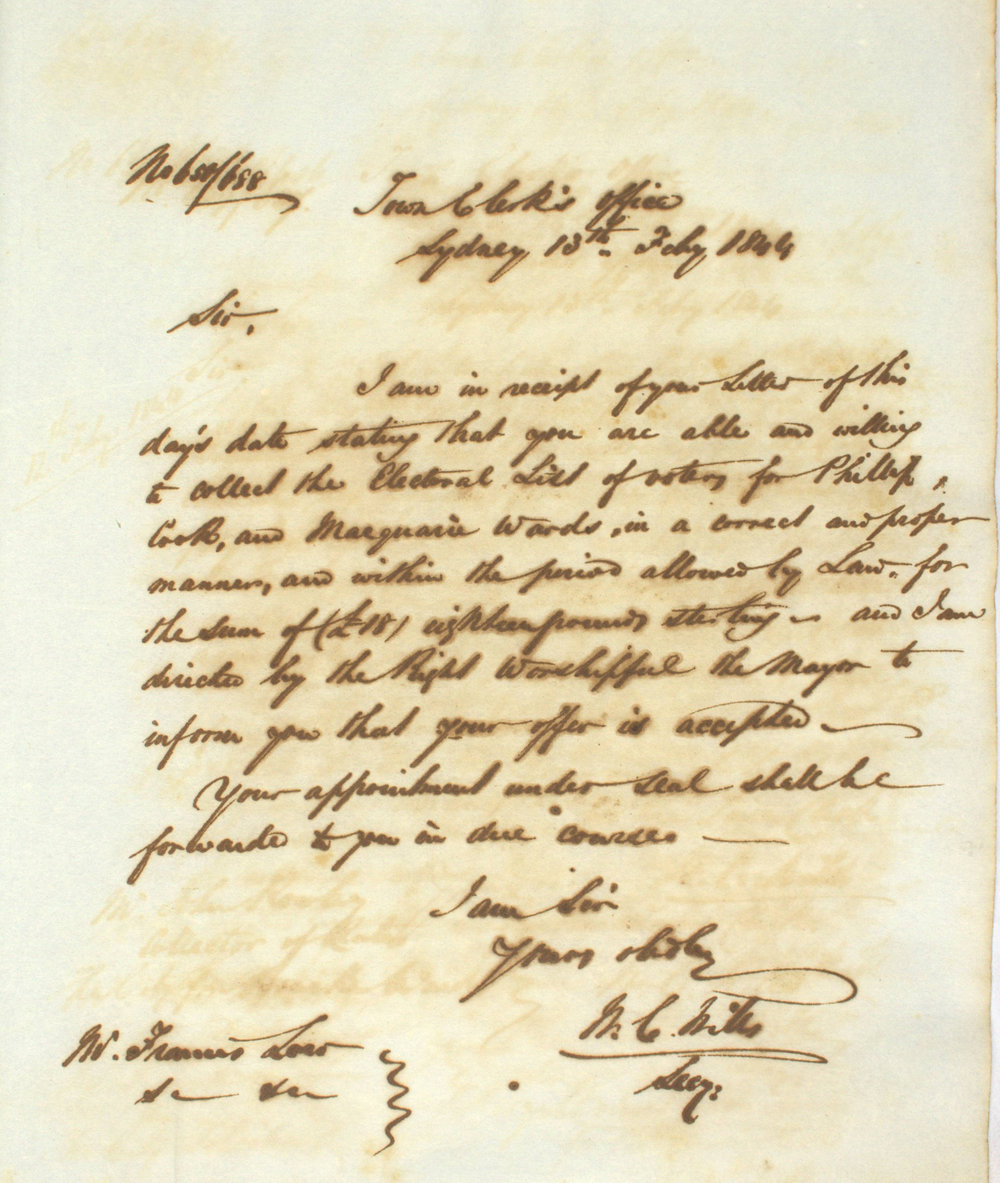 No 650/658
Town Clerk's Office
Sydney 13th Feby 1844
Sir,
I am in receipt of your Letter of this
day's date stating that you are able and willing
to collect the Electoral List of voters for Phillip,
Cook, and Macquarie Wards, in a correct and proper
manner, and within the period allowed by Law, for
the sum of (£18) eighteen pounds sterling - and I am
directed by the Right Worshipful the Mayor to
inform you that your offer is accepted -
Your appointment under seal shall be
forwarded to you in due course -
I am Sir
Yours obdly
W. C. Wills
Secy:
Mr. Francis Low
&c &c